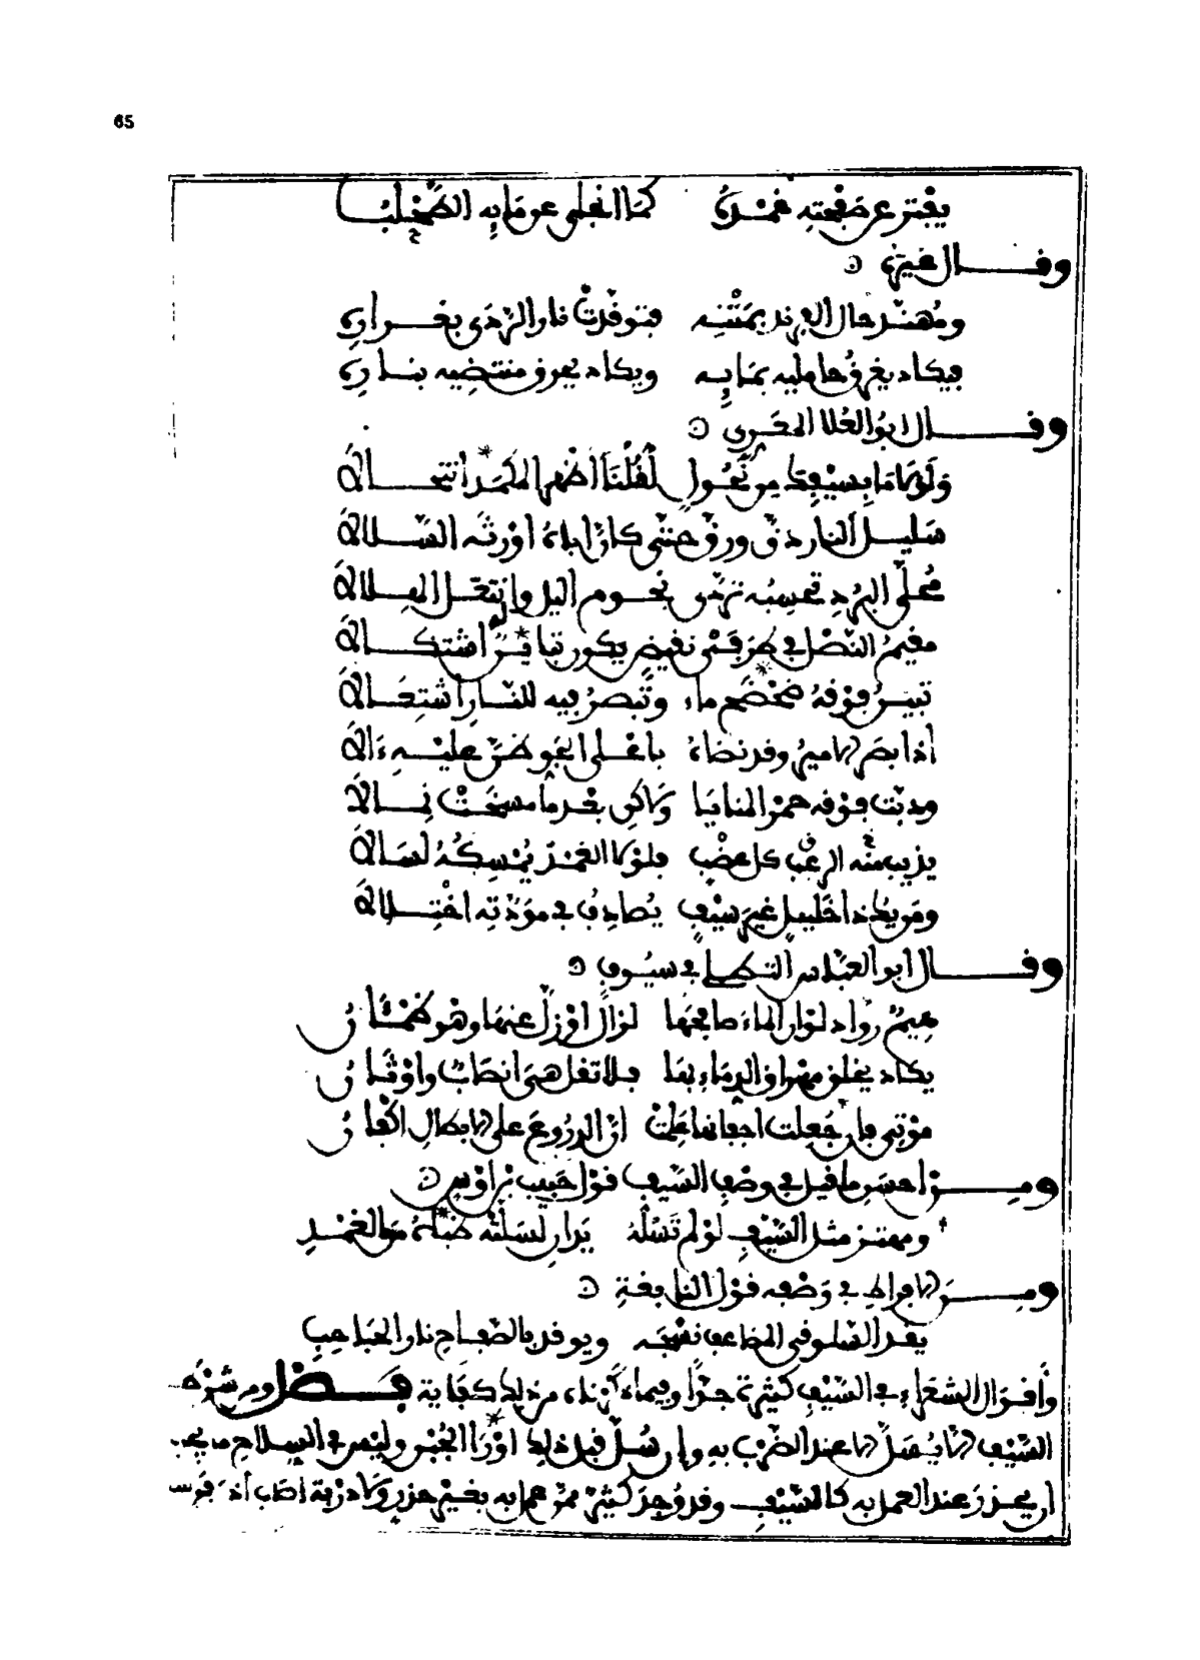 65
يفتر عن صفحته غمده كما انجلى عن مايه الطحلب
وقـال غيره
ومهند حال الفرند بمتنه فتوقدت نار الردى بغراره
فيكاد يغرق حامليه بمايه ويكاد يحرق منتضيه بناره
وقـال ابو العلا المعري
ولولا ما بسيفك من نحول لقلنا اظهر الكمد انتحالا
سليل النار دق ورق حتى كان اباه اورثه السلالا
محلى البرد تحسبه تردى نجوم اليل وانتعل الهلالا
مقيم النصل في طرفي نقيض يكون تباين اشتكالا
تبين فوقه ضحضاح ماء وتبصر فيه للنار اشتعالا
اذا بصر الامير وقد نضاه باعلى الجو ظن عليه ءالا
ودبت فوقه حمر المنايا ولاكن بعد ما مسخت نمالا
يذيب منه الرعب كل عضب فلولا الغمد يمسكه لسالا
ومن يك ذا خليل غير سيف يصادف في مودته اختلالا
وقـال ابو العباس التطيلي في سيوف
هيم رواء لو ان الماء صافحها لزال او زل عنها وهو ظمئان
يكاد يخلق مهراق الدماء بها فلا تقل هي انصاب واوثان
موتى فان جعلت اجفانها علمت ان الدروع على الابطال اكفان
ومـن احسن ما قيل في وصف السيف قول حبيب بن اوس
ومهتز مثل السيف لو لم تسله يدان لسلته ظباه من الغمد
ومـن الافراط في وصفه قول النابغة
يقد السلوقي المضاعف نسجه ويوقد بالصفاح نار الحباحب
واقوال الشعراء في السيف كثيرة جدا وفيما ذكرناه من ذلك كفاية فـصل ومن شرط
السيف الا يسل الا عند الضرب به وان سل قبل ذلك اورث الجبن وليس في السلاح ما يجب
ان يحذر عند العمل به كالسيف وقد وجد كثير ممن عمل به بغير حذر ولا دربة اصاب اذن فرسه